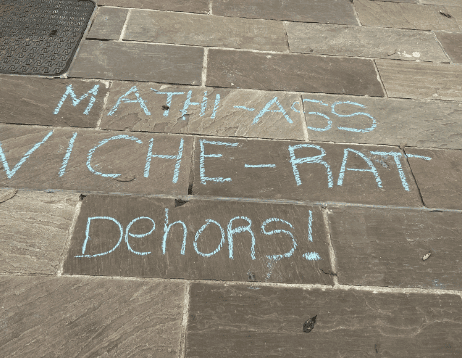 MATHI-ASS
VICHE-RAT
Dehors!